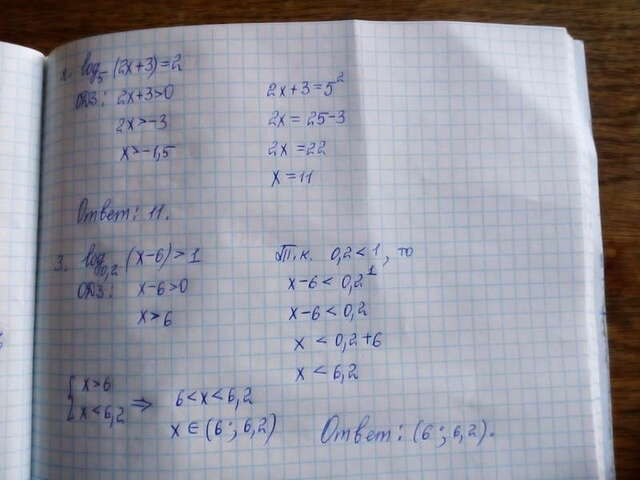 2. log₅(2x+3)=2
ОДЗ: 2x+3>0
2x>-3
x>-1,5
2x+3=5²
2x=25-3
2x=22
x=11
Ответ: 11.
3. log₀,₂(x-6)>1
ОДЗ: x-6>0
x>6
Т.к. 0,2<1, то
x-6<0,2¹
x-6<0,2
x<0,2+6
x<6,2
{x>6
x<6,2 ⇒ 6<x<6,2
x∈(6; 6,2)
Ответ: (6; 6,2).